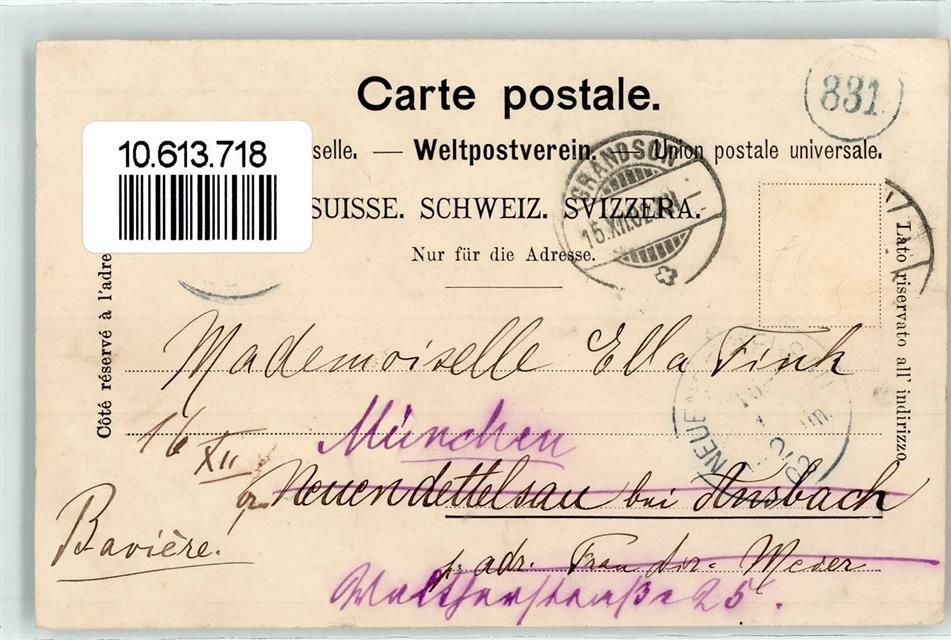 Carte postale.
831
10.613.718
selle. — Weltpostverein. — Union postale universale.
GRANDSON
15.XII.02
SUISSE. SCHWEIZ. SVIZZERA.
Nur für die Adresse.
Côté réservé à l'adre
Lato riservato all' indirizzo
Mademoiselle Ella Fink
16 XII
München
NEUE
Neuendettelsau bei Ansbach
Bavière.
p. adr. Frau Meder
Waltherstraße 25.